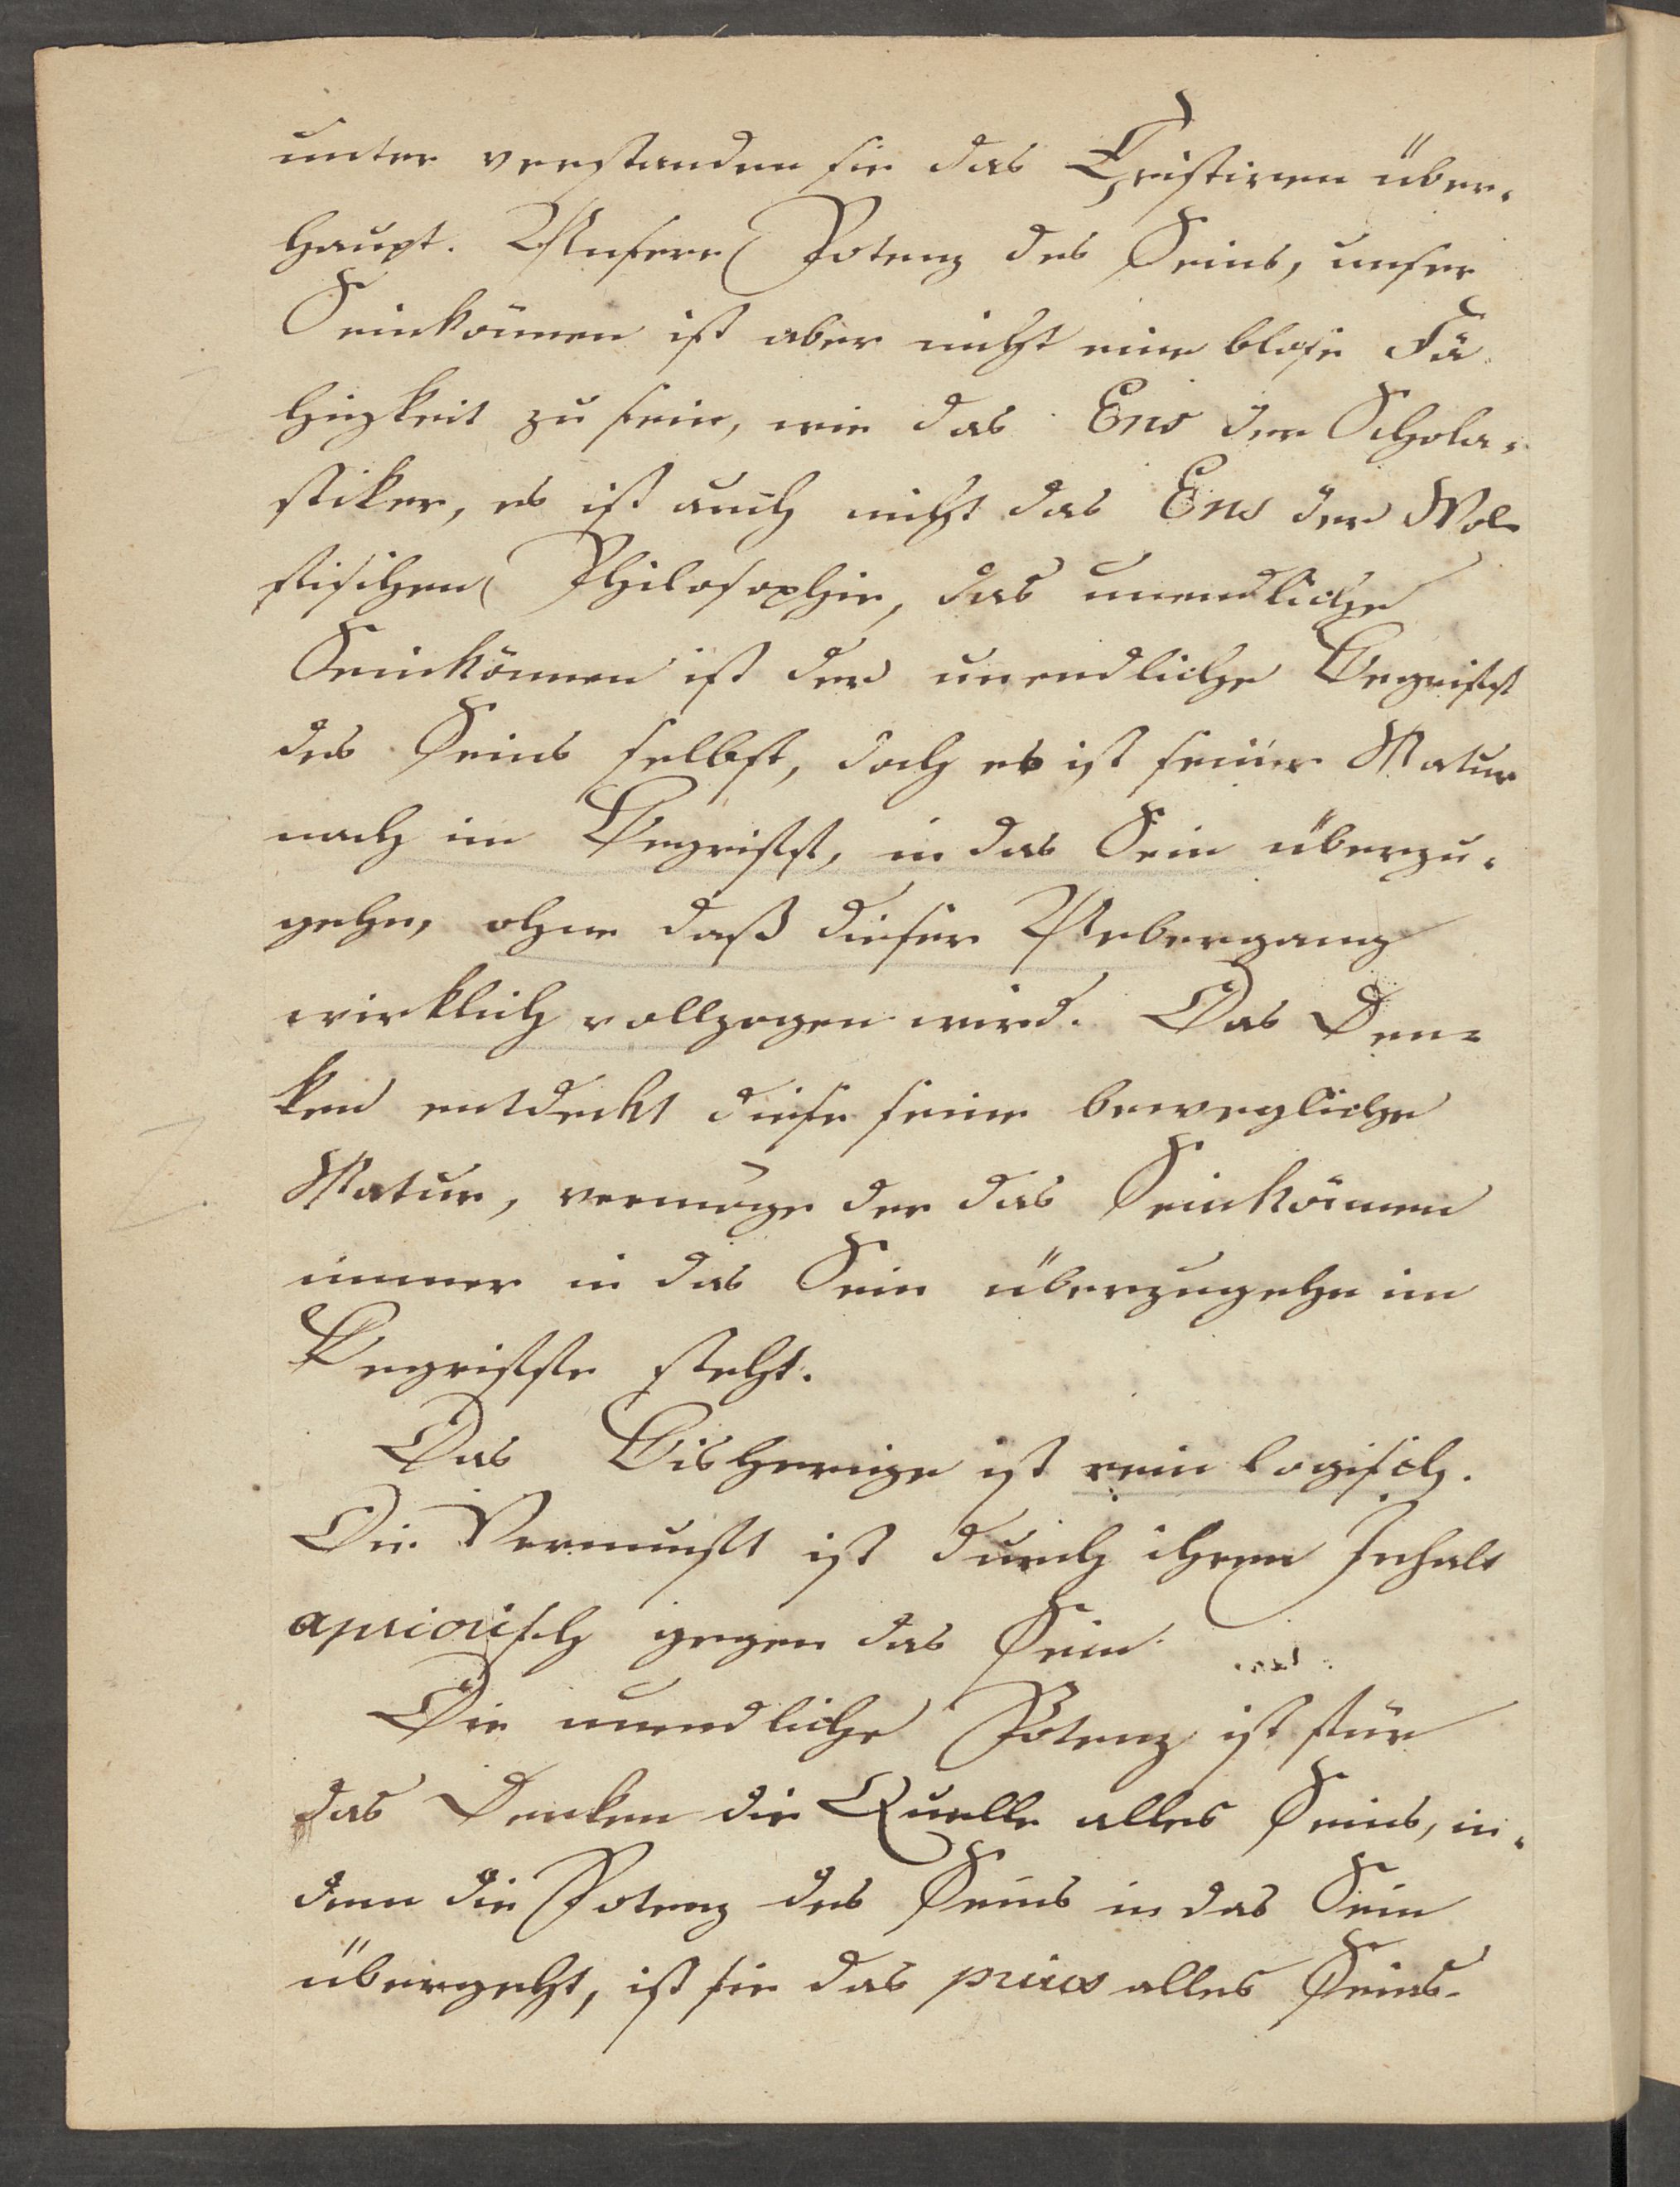 unter verstanden sie das Existiren über-
haupt. Unsere Potenz des Seins, unser
Seinkönnen ist aber nicht eine blose Fä
higkeit zu sein, wie das Ens der Schola-
stiker, es ist auch nicht das Ens der Wol-
fischen Philosophie, das unendliche
Seinkönnen ist der unendliche Begriff
des Seins selbst, doch es ist seiner Natur
nach im Begriff, in das Sein überzu-
gehn, ohne daß dieser Uebergang
wirklich vollzogen wird. Das Den-
ken entdeckt diese seine bewegliche
Natur, vermöge der das Seinkönnen
immer in das Sein überzugehn im
Begriffe steht.
Das Bisherige ist rein logisch.
Die Vernunft ist durch ihren Inhalt
apriorisch gegen das Sein.
Die unendliche Potenz ist für
das Denken die Quelle alles Seins, in-
dem die Potenz des Seins in das Sein
übergeht, ist sie das prius alles Seins.